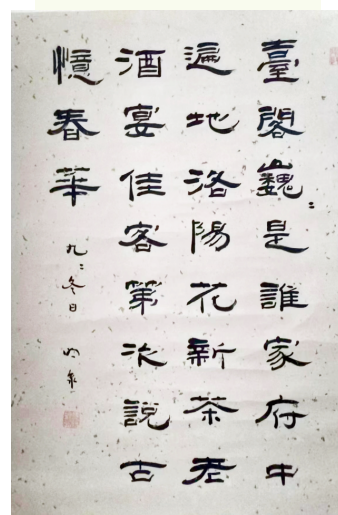 臺閣巍〻是誰家府中
遍地洛陽花新茶老
酒宴佳客第次說古
憶春華
九〻冬日 明泉